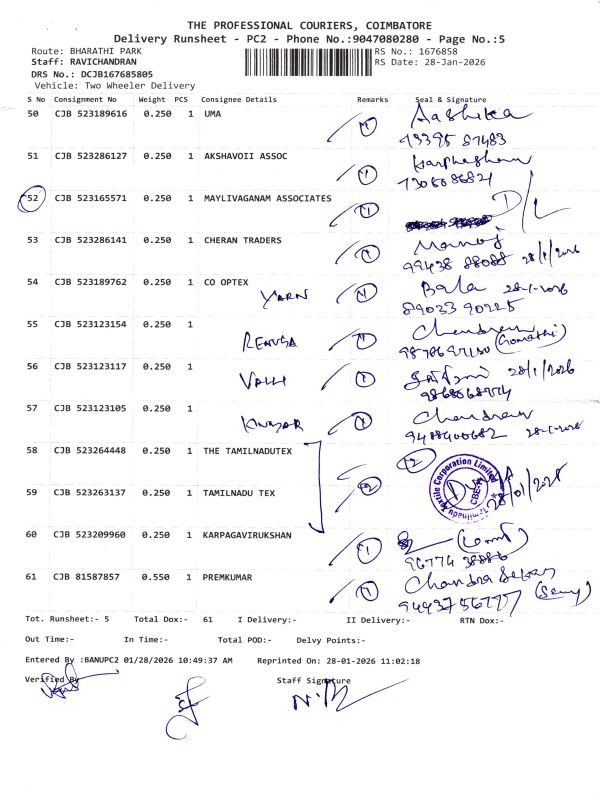 THE PROFESSIONAL COURIERS, COIMBATORE
Delivery Runsheet - PC2 - Phone No.:9047080280 - Page No.:5
Route: BHARATHI PARK RS No.: 1676858
Staff: RAVICHANDRAN RS Date: 28-Jan-2026
DRS No.: DCJB167685805
Vehicle: Two Wheeler Delivery
S No Consignment No Weight PCS Consignee Details Remarks Seal & Signature
50 CJB 523189616 0.250 1 UMA 1 Aashika
79395 87483
51 CJB 523286127 0.250 1 AKSHAVOII ASSOC 1
52 CJB 523165571 0.250 1 MAYLIVAGANAM ASSOCIATES 1 D/L
53 CJB 523286141 0.250 1 CHERAN TRADERS 1 Manoj
99438 88088 28/1/2026
54 CJB 523189762 0.250 1 CO OPTEX YARN 1 Bala 28-1-2026
89033 90225
55 CJB 523123154 0.250 1 RENUGA 1 Chandran
(Gomathi)
56 CJB 523123117 0.250 1 VALLI 1 28/1/2026
57 CJB 523123105 0.250 1 KUMAR 1 Chandran
9488400682 28-1-2026
58 CJB 523264448 0.250 1 THE TAMILNADUTEX 2
Textile Corporation Limited
CBE
Tamilnadu
28/01/2026
59 CJB 523263137 0.250 1 TAMILNADU TEX 2
60 CJB 523209960 0.250 1 KARPAGAVIRUKSHAN 1
96774 38886
61 CJB 81587857 0.550 1 PREMKUMAR 1 Chandra Sekar
9443756777
Tot. Runsheet:- 5 Total Dox:- 61 I Delivery:- II Delivery:- RTN Dox:-
Out Time:- In Time:- Total POD:- Delvy Points:-
Entered By :BANUPC2 01/28/2026 10:49:37 AM Reprinted On: 28-01-2026 11:02:18
Verified By Staff Signature